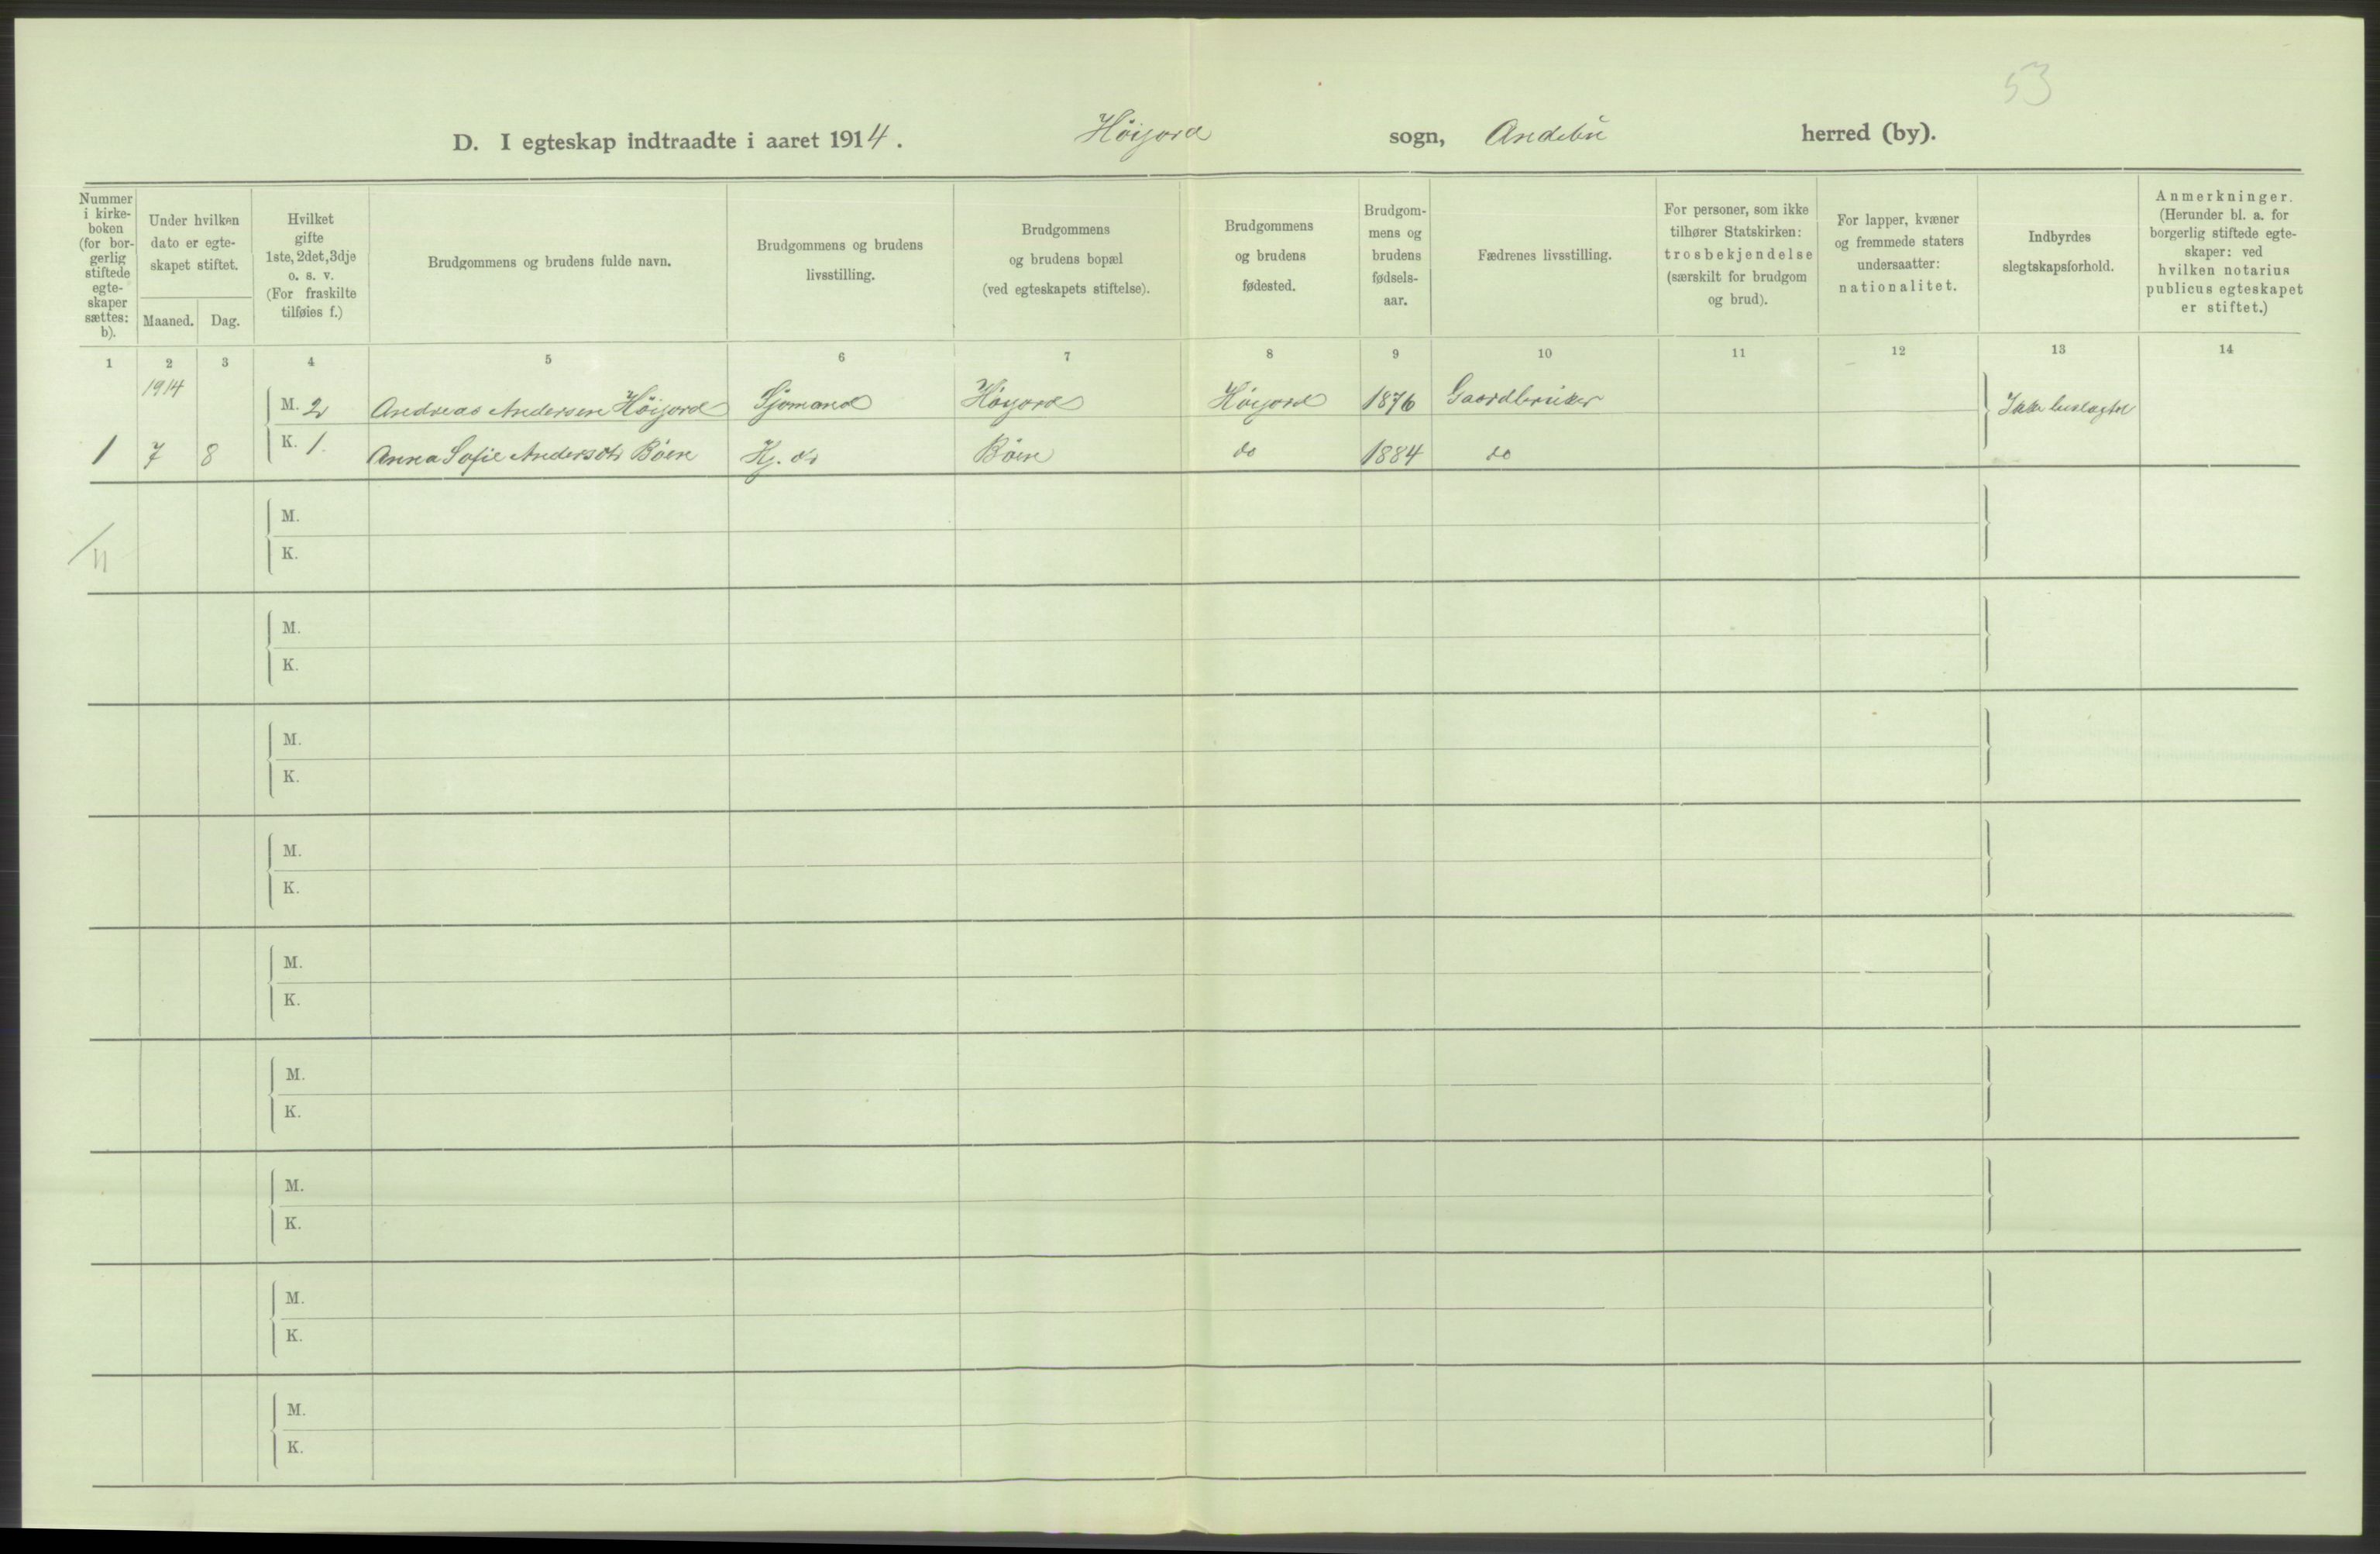 53
D. I egteskap indtraadte i aaret 1914. Höijord sogn, Andebu herred (by).
Nummer i kirke-boken (for bor-gerlig stiftede egte-skaper sættes: b).
Under hvilken dato er egte-skapet stiftet.
Maaned. Dag.
Hvilket gifte 1ste, 2det, 3dje o. s. v. (For fraskilte tilføies f.)
Brudgommens og brudens fulde navn.
Brudgommens og brudens livsstilling.
Brudgommens og brudens bopæl (ved egteskapets stiftelse).
Brudgommens og brudens fødested.
Brudgom-mens og brudens fødsels-aar.
Fædrenes livsstilling.
For personer, som ikke tilhører Statskirken: trosbekjendelse (særskilt for brudgom og brud).
For lapper, kvæner og fremmede staters undersaatter: nationalitet.
Indbyrdes slegtskapsforhold.
Anmerkninger. (Herunder bl. a. for borgerlig stiftede egte-skaper: ved hvilken notarius publicus egteskapet er stiftet.)
1 2 3 4 5 6 7 8 9 10 11 12 13 14
1914
M. 2 Andreas Andersen Höijord Sjömand Höijord Höijord 1876 Gaardbruker Ikke beslægtet
1 7 8 K. 1. Anna Sofie Andersdtr Böen Hj. dr Böen do 1884 do
M.
K.
M.
K.
M.
K.
M.
K.
M.
K.
M.
K.
M.
K.
M.
K.
M.
K.